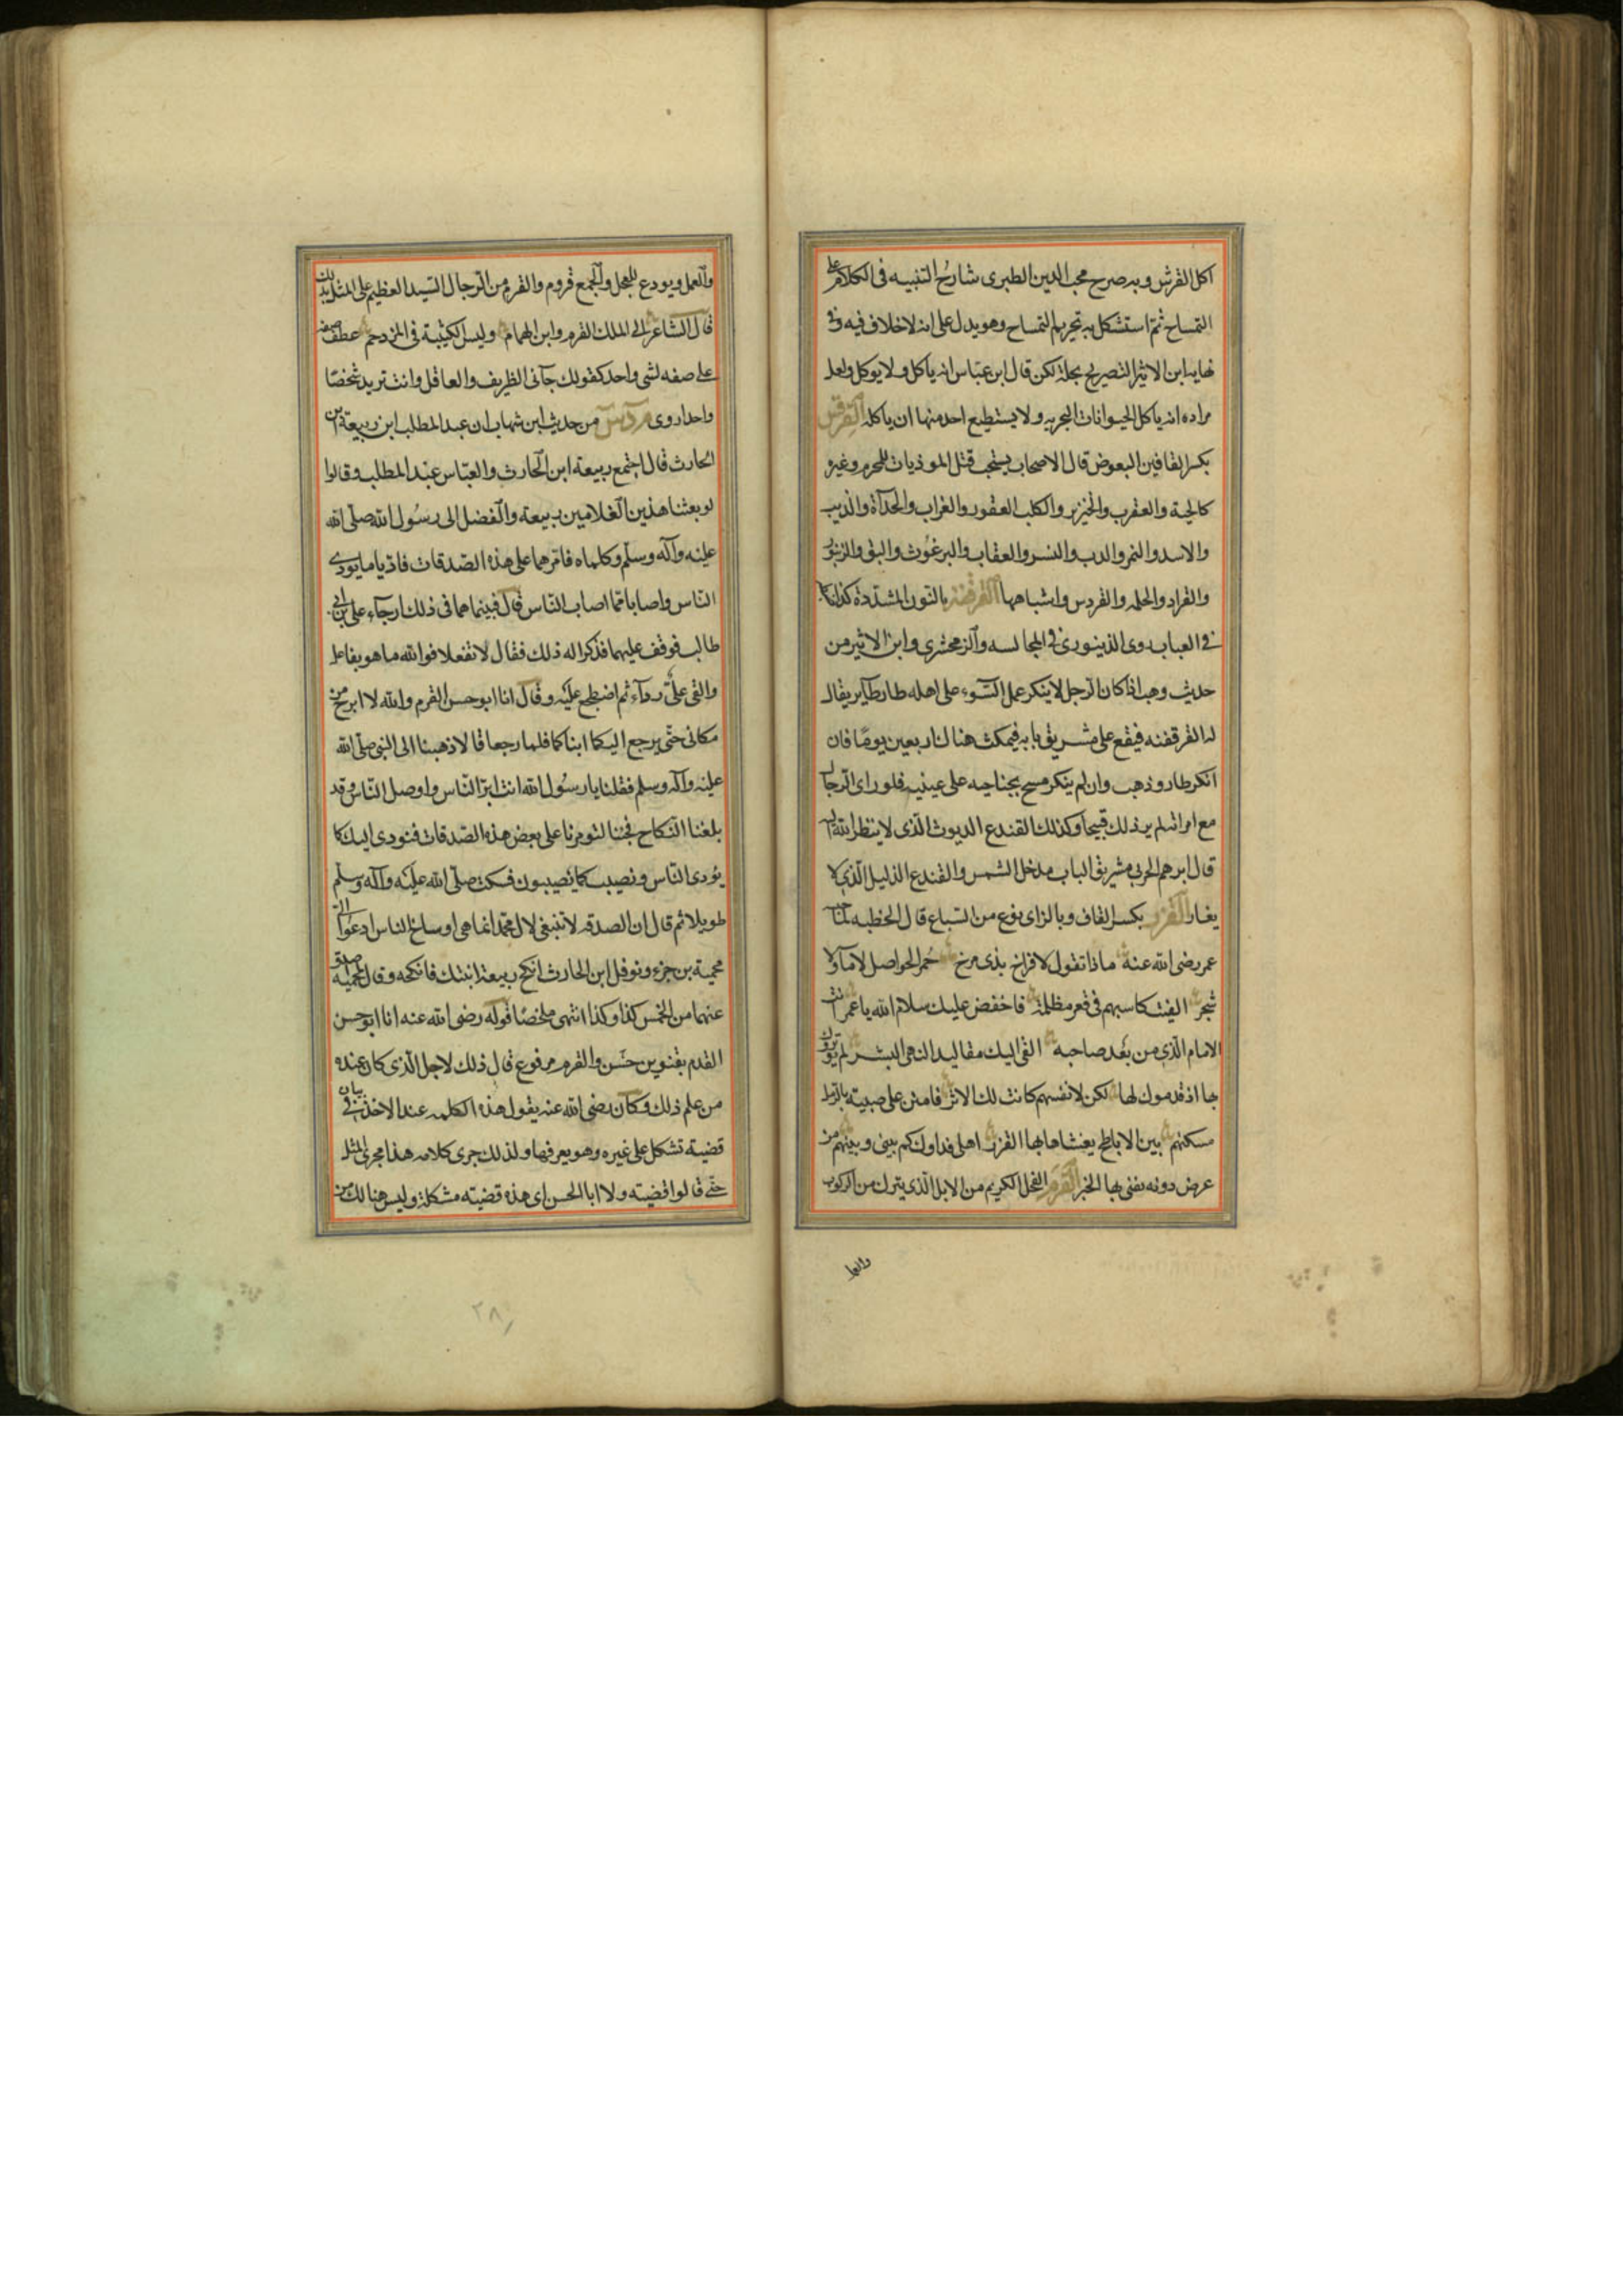 اكل القرش وبه صرح محب الدين الطبري شارح التنبيه في الكلام على
التمساح ثم استشكل به تحريم التمساح وهو يدل على انه لا خلاف فيه وفي
نهاية ابن الاثير التصريح بحله لكن قال ابن عباس انه ياكل ولا يوكل ولعل
مراده انه ياكل الحيوانات البحريه ولا يستطيع احد منها ان ياكله القرقس
بكسر القافين البعوض قال الاصحاب يستحب قتل الموذيات للمحرم وغيره
كالحية والعقرب والخنزير والكلب العقور والغراب والحدآة والذيب
والاسد والنمر والدب والنسر والعقاب والبرغوث والبق والزنبور
والقراد والحلمه والقردس واشباهها القرقفنه بالنون المشددة كذا
في العباب روى الدينوري في المجالسه والزمخشري وابن الاثير من
حديث وهب اذا كان الرجل لا ينكر عمل السوء على اهله طار طاير يقال
له القرقفنه فيقع على مشريق بابه فيمكث هنالك اربعين يوما فان
انكر طار وذهب وان لم ينكر مسح بجناحيه على عينيه فلو راى الرجال
مع امراته لم ير ذلك قبيحا وكذلك القندع الديوث الذي لا ينظر الله اليه
قال ابرهم الحربي مشريق الباب مدخل الشمس والقندع الذليل الذي لا
يغار القرز بكسر القاف وبالزاي نوع من السباع قال الحطيه
عمر رضي الله عنه ماذا تقول لافراخ بذي مرخ حمر الحواصل لا مآ ولا
شجر القيت كاسبهم في قعر مظلمة فاخفض عليك سلام الله يا عمر انت
الامام الذي من بعد صاحبه القى اليك مقاليد النهى البشر لم يوثروك
بها اذ قدموك لها لكن لانفسهم كانت لك الاثر فامنن على صبية بالرمل
مسكنهم بين الاباطح يغشاها بها القزر اهلى فداوك كم بيني وبينهم من
عرض دونه يفنى بها الخبر القرم الفحل الكريم من الابل الذي يترك من الركوب
والعمل
والعمل ويودع للفحل والجمع قروم والقرم من الرجال السيد العظيم على المثل بذلك
قال الشاعر الى الملك القرم وابن الهمام وليس الكتيبة في المزدحم عطف صفه
على صفه لشي واحد كقولك جآني الظريف والعاقل وانت تريد شخصا
واحدا روى من حديث ابن شهاب ان عبد المطلب ابن ربيعة ابن
الحارث قال اجتمع ربيعة ابن الحارث والعباس عبد المطلب وقالوا
لو بعثنا هذين الغلامين ربيعة والفضل الى رسول الله صلى الله
عليه وآله وسلم وكلماه فامرهما على هذه الصدقات فاديا ما يودي
الناس واصابا مما اصاب الناس قال فبينما هما في ذلك ا رجآء علي بن ابي
طالب فوقف عليهما فذكرا له ذلك فقال لا تفعلا فوالله ما هو بفاعل
والقى علي ردآء ثم اضطجع عليه وقال انا ابو حسن القرم والله لا ابرح من
مكاني حتى يرجع اليكما ابناكما فلما رجعا قالا ذهبنا الى النبي صلى الله
عليه وآله وسلم فقلنا يا رسول الله انت ابر الناس واوصل الناس وقد
بلغنا النكاح فجئنا لتومرنا على بعض هذه الصدقات فنودى اليك كما
يؤدى الناس ونصيب كما يصيبون فسكت صلى الله عليه وآله وسلم
طويلا ثم قال ان الصدقه لا تنبغي لال محمد انما هي اوساخ الناس ادعوا الي
محمية بن جزء ونوفل ابن الحارث انكح ربيعة ابنتك فانكحه وقال لمحمية صدق
عنهما من الخمس كذا وكذا انتهى ملخصا قوله رضي الله عنه انا ابو حسن
القدم بتنوين حسن والقرم مرفوع قال ذلك لاجل الذي كان عنده
من علم ذلك وكان رضي الله عنه يقول هذه الكلمه عند الاخذ في بيان
قضية تشكل على غيره وهو يعرفها ولذلك جرى كلامه هذا مجرى المثل
حتى قالوا قضيته ولا ابا الحسن اى هذه قضيته مشكلة وليس هنالك من
٢٨